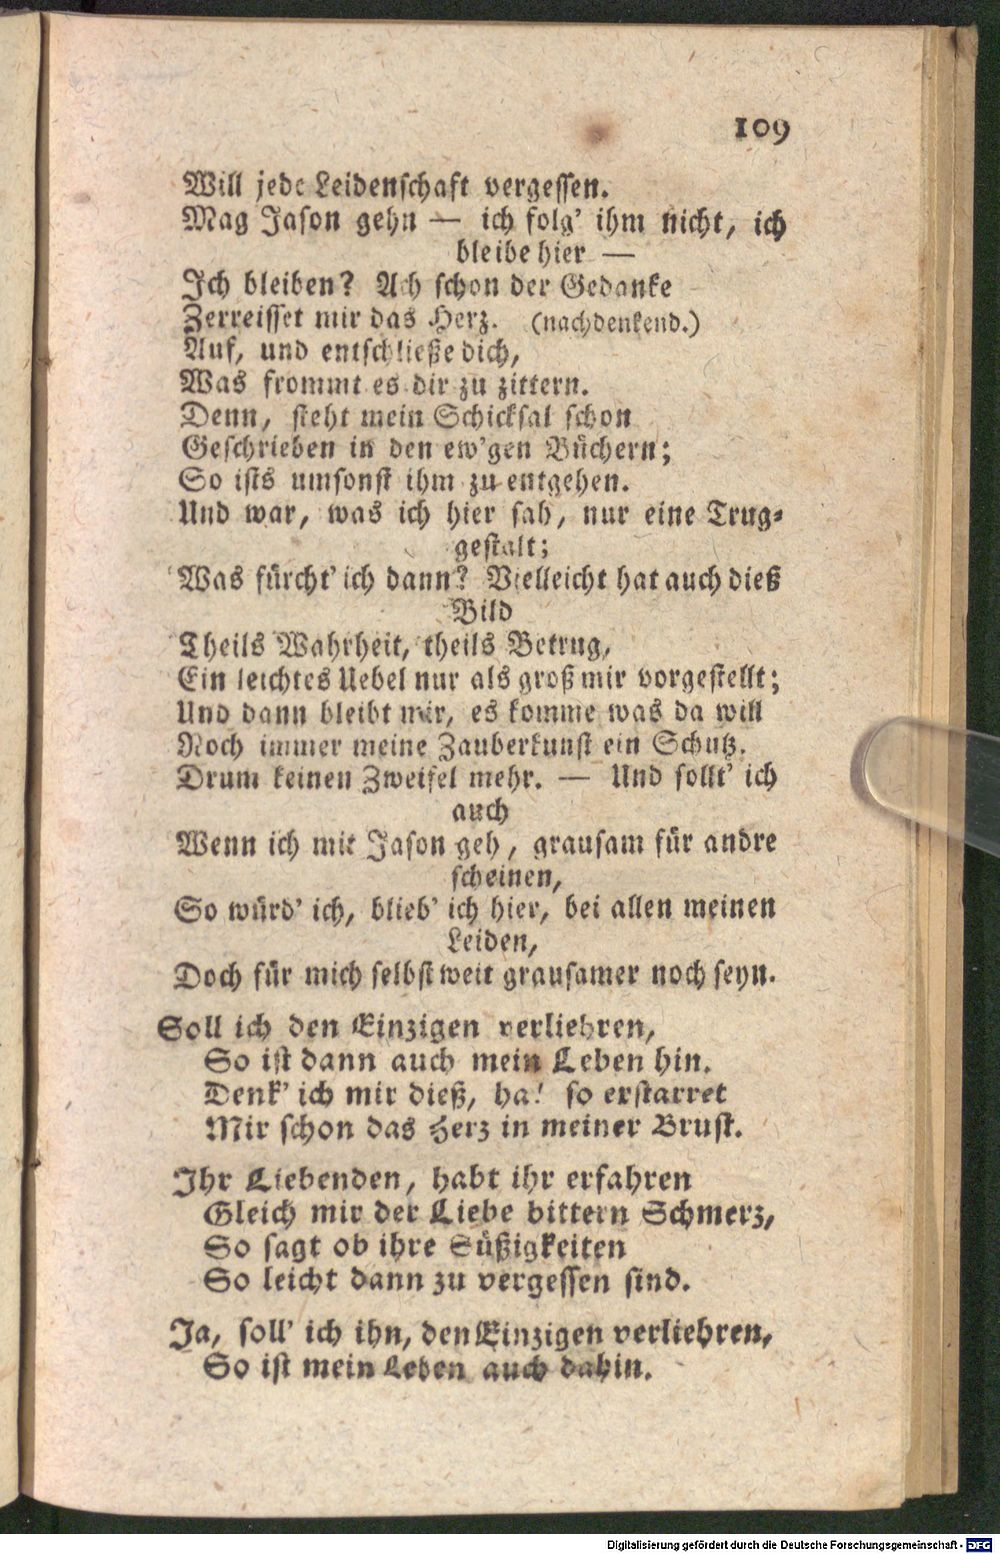 109
Will jede Leidenschaft vergessen.
Mag Jason gehn — ich folg' ihm nicht, ich
bleibe hier —
Ich bleiben? Ach schon der Gedanke
Zerreisset mir das Herz. (nachdenkend.)
Auf, und entschließe dich,
Was frommt es dir zu zittern.
Denn, steht mein Schicksal schon
Geschrieben in den ew'gen Büchern;
So ists umsonst ihm zu entgehen.
Und war, was ich hier sah, nur eine Trug-
gestalt;
Was fürcht' ich dann? Vielleicht hat auch dieß
Bild
Theils Wahrheit, theils Betrug,
Ein leichtes Uebel nur als groß mir vorgestellt;
Und dann bleibt mir, es komme was da will
Noch immer meine Zauberkunst ein Schutz.
Drum keinen Zweifel mehr. — Und sollt' ich
auch
Wenn ich mit Jason geh, grausam für andre
scheinen,
So würd' ich, blieb' ich hier, bei allen meinen
Leiden,
Doch für mich selbst weit grausamer noch seyn.
Soll ich den Einzigen verliehren,
So ist dann auch mein Leben hin.
Denk' ich mir dieß, ha! so erstarret
Mir schon das Herz in meiner Brust.
Ihr Liebenden, habt ihr erfahren
Gleich mir der Liebe bittern Schmerz,
So sagt ob ihre Süßigkeiten
So leicht dann zu vergessen sind.
Ja, soll' ich ihn, den Einzigen verliehren,
So ist mein Leben auch dahin.
Digitalisierung gefördert durch die Deutsche Forschungsgemeinschaft - DFG